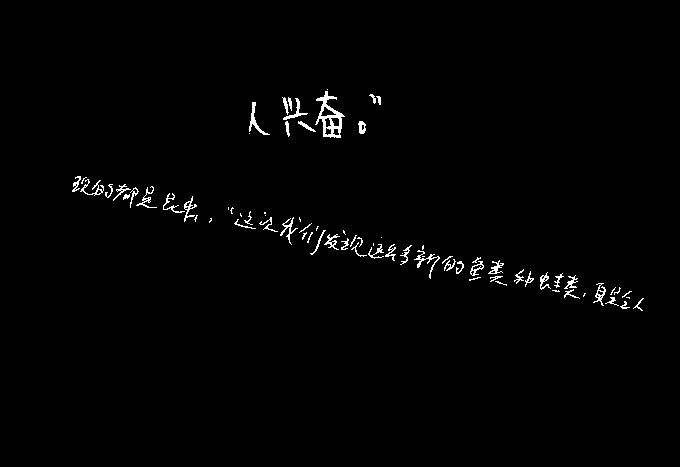 人兴奋。”
现的都是昆虫，“这次我们发现这么多新的鱼类和蛙类，真是令人